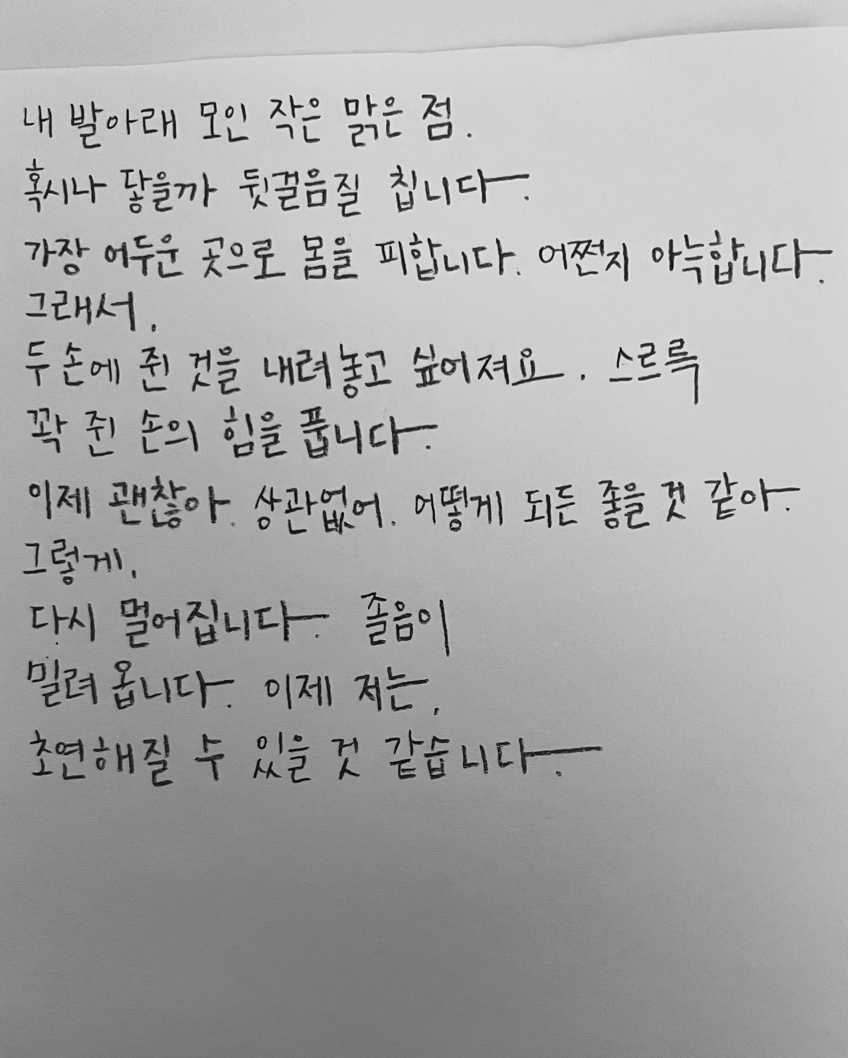 내 발아래 모인 작은 맑은 점.
혹시나 닿을까 뒷걸음질 칩니다.
가장 어두운 곳으로 몸을 피합니다. 어쩐지 아늑합니다.
그래서,
두 손에 쥔 것을 내려놓고 싶어져요. 스르륵
꽉 쥔 손의 힘을 풉니다.
이제 괜찮아. 상관없어. 어떻게 되든 좋을 것 같아.
그렇게,
다시 멀어집니다. 졸음이
밀려 옵니다. 이제 저는,
초연해질 수 있을 것 같습니다.